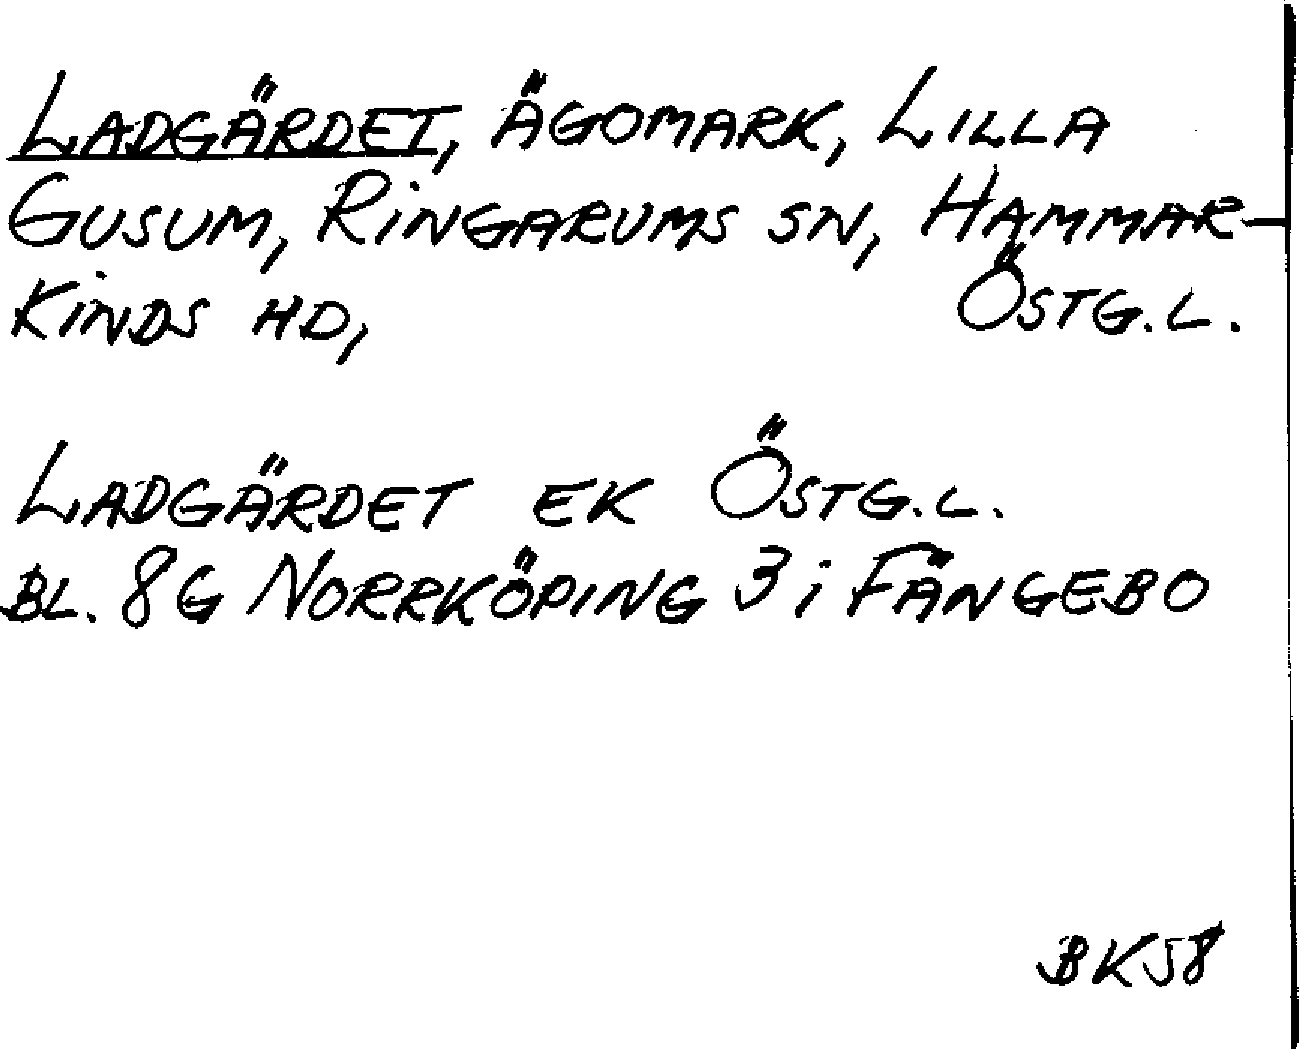 LADGÄRDET, ÄGOMARK, LILLA
GUSUM, RINGARUMS SN, HAMMAR-
KINDS HD, ÖSTG.L.
LADGÄRDET EK ÖSTG.L.
BL. 8G NORRKÖPING 3i FÄNGEBO
BK58